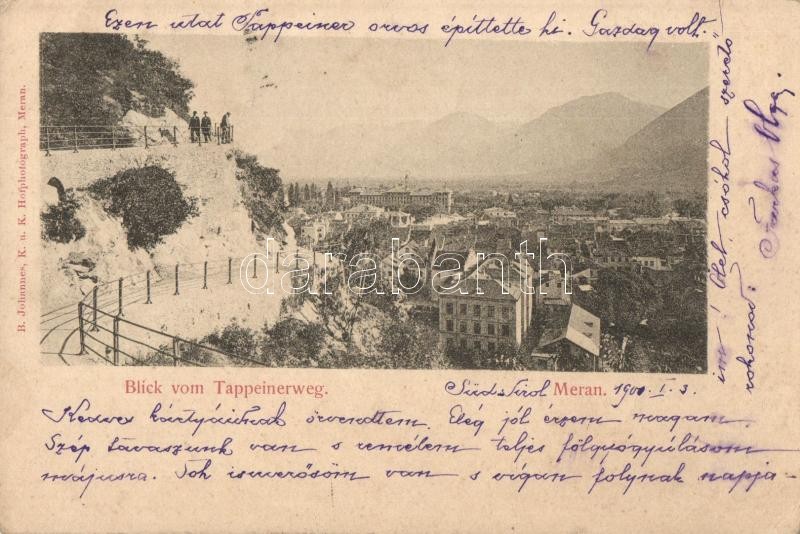 Ezen utat Tappeiner orvos építtette ki. Gazdag volt.
B. Johannes, K. u. K. Hofphotograph, Meran.
darabanth
Blick vom Tappeinerweg.
Süd-Tirol Meran. 1900. I. 3.
Kedves kártyáitnak örvendtem. Elég jól érzem magam.
Szép tavaszunk van s remélem teljes fölgyógyulásom
májusra. Sok ismerősöm van s vígan folynak napja-
im! Ölel, csókol szerető
rokonod: Farkas Olga.